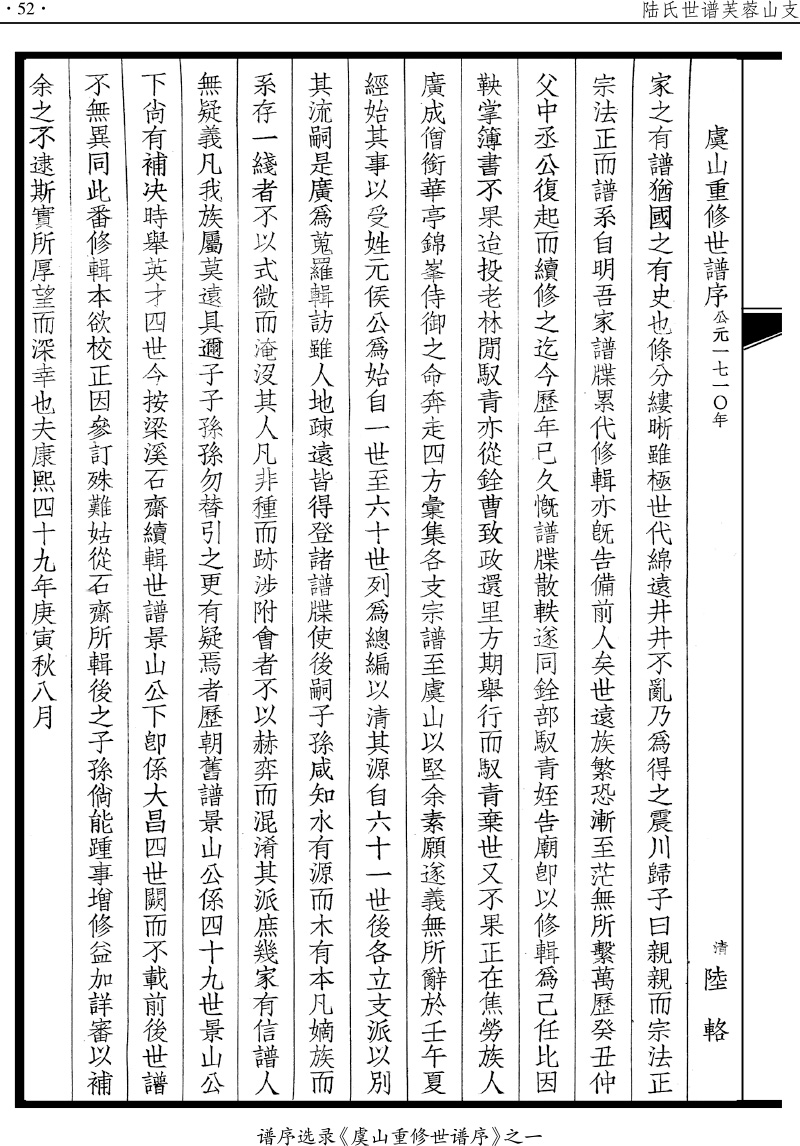 ·52·
陆氏世谱芙蓉山支
虞山重修世譜序公元一七一〇年 清 陸輅
家之有譜猶國之有史也條分縷晰雖極世代綿遠井井不亂乃爲得之震川歸子曰親親而宗法正
宗法正而譜系自明吾家譜牒累代修輯亦旣告備前人矣世遠族繁恐漸至茫無所繫萬歷癸丑仲
父中丞公復起而續修之迄今歷年已久慨譜牒散軼遂同銓部馭青姪告廟卽以修輯爲己任比因
鞅掌簿書不果迨投老林閒馭青亦從銓曹致政還里方期舉行而馭青棄世又不果正在焦勞族人
廣成僧銜華亭錦峯侍御之命奔走四方彙集各支宗譜至虞山以堅余素願遂義無所辭於壬午夏
經始其事以受姓元侯公爲始自一世至六十世列爲總編以清其源自六十一世後各立支派以別
其流嗣是廣爲蒐羅輯訪雖人地疎遠皆得登諸譜牒使後嗣子孫咸知水有源而木有本凡嫡族而
系存一綫者不以式微而淹沒其人凡非種而跡涉附會者不以赫弈而混淆其派庶幾家有信譜人
無疑義凡我族屬莫遠具邇子子孫孫勿替引之更有疑焉者歷朝舊譜景山公係四十九世景山公
下尙有補决時舉英才四世今按梁溪石齋續輯世譜景山公下卽係大昌四世闕而不載前後世譜
不無異同此番修輯本欲校正因參訂殊難姑從石齋所輯後之子孫倘能踵事增修益加詳審以補
余之不逮斯實所厚望而深幸也夫康熙四十九年庚寅秋八月
谱序选录《虞山重修世谱序》之一